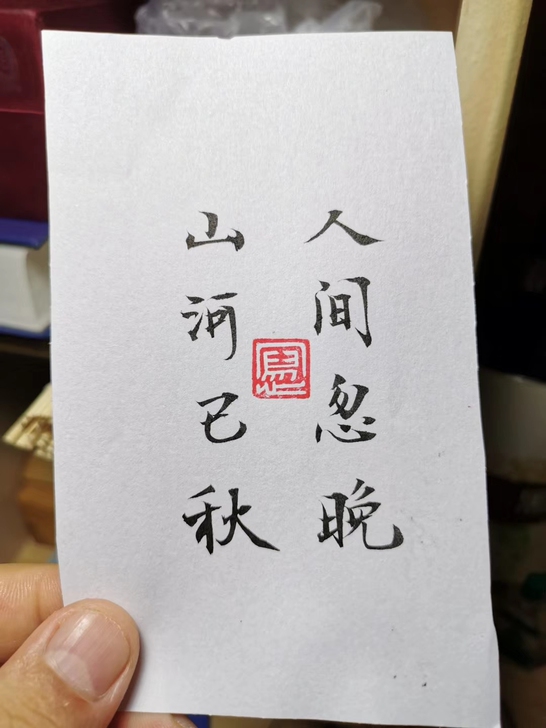 人间忽晚
山河已秋